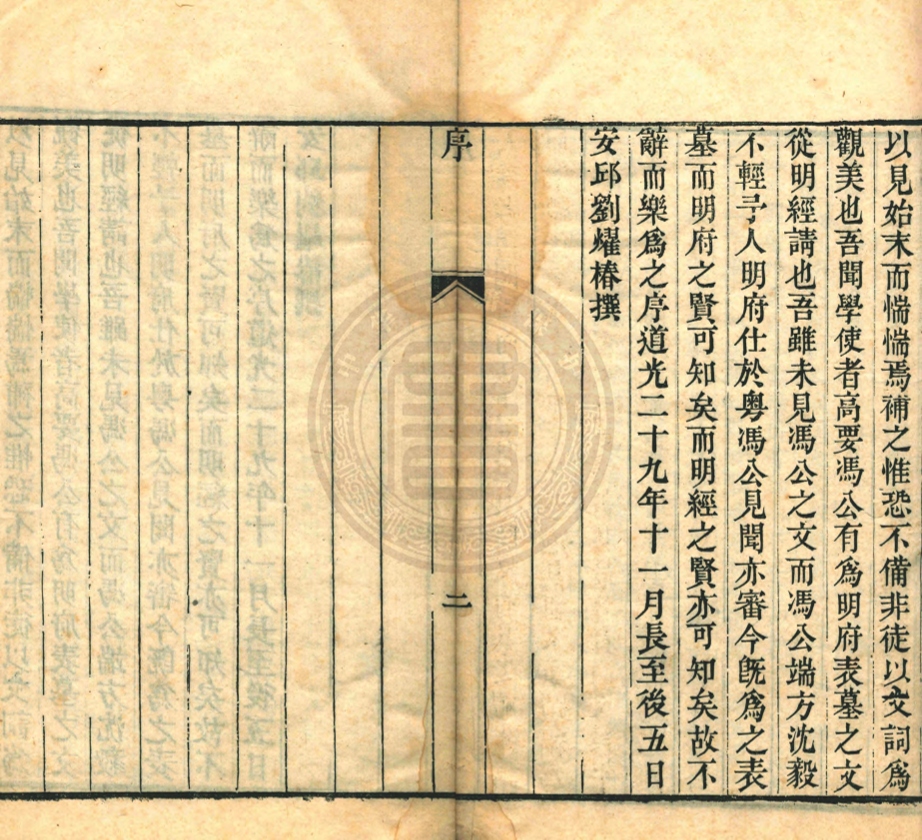 以見始末而惴惴焉補之惟恐不備非徒以文詞爲
觀美也吾聞學使者高要馮公有爲明府表墓之文
從明經請也吾雖未見馮公之文而馮公端方沈毅
不輕予人明府仕於粵馮公見聞亦審今旣爲之表
墓而明府之賢可知矣而明經之賢亦可知矣故不
辭而樂爲之序道光二十九年十一月長至後五日
安邱劉耀椿撰
序
二